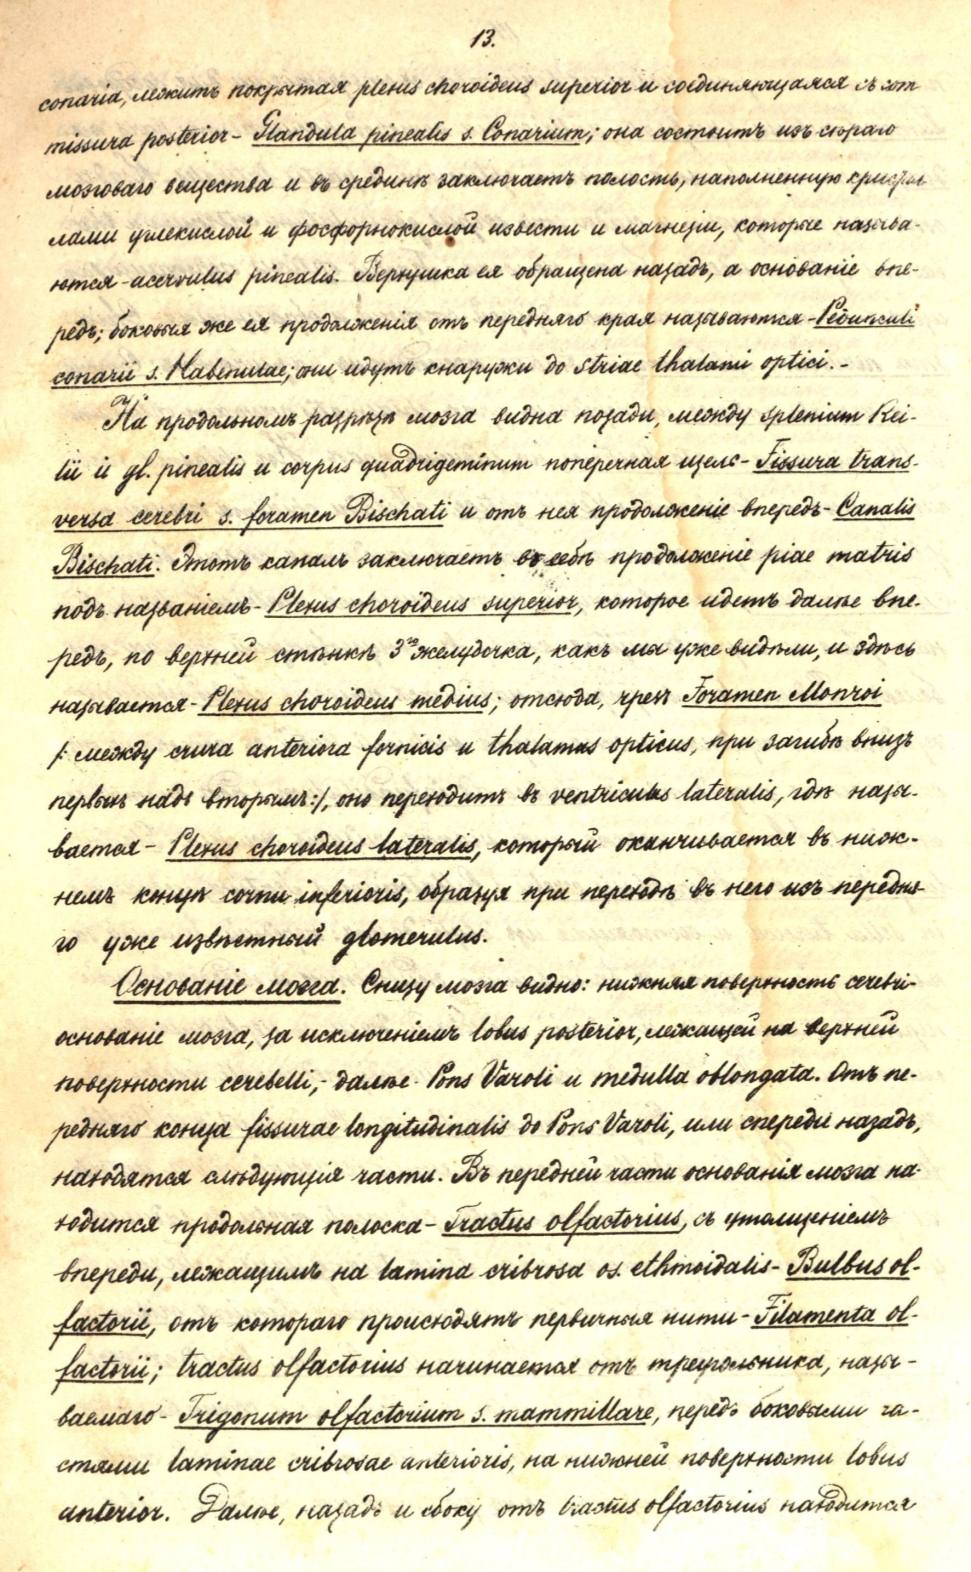 13.
conaria, лежитъ покрытая plexus choroideus superior и соединяющаяся съ com
missura posterior - Glandula pinealis s. Conarium; она состоитъ изъ сѣраго
мозговаго вещества и въ срединѣ заключаетъ полость, наполненную кристал
лами углекислой и фосфорнокислой извести и магнезіи, которые называ-
ются - acervulus pinealis. Верхушка ея обращена назадъ, а основаніе впе-
редъ; боковыя же ея продолженія отъ передняго края называются - Pedunculi
conarii s. Habenulae; они идутъ кнаружи до striae thalami optici. -
На продольномъ разрѣзѣ мозга видна позади, между splenium Rei-
lii и gl. pinealis и corpus quadrigeminum поперечная щель - Fissura trans-
versa cerebri s. foramen Bischati и отъ нея продолженіе впередъ - Canalis
Bischati. Этотъ каналъ заключаетъ въ себѣ продолженіе piae matris
подъ названіемъ - Plexus choroideus superior, которое идетъ далѣе впе-
редъ, по верхней стѣнкѣ 3го желудочка, какъ мы уже видѣли, и здѣсь
называется - Plexus choroideus medius; отсюда, чрезъ Foramen Monroi
/: между crura anteriora fornicis и thalamus opticus, при загибѣ внизъ
первыхъ надъ вторымъ:/, оно переходитъ въ ventriculus lateralis, гдѣ назы-
вается - Plexus choroideus lateralis, который оканчивается въ ниж-
немъ концѣ cornu inferioris, образуя при переходѣ въ него изъ передня-
го уже извѣстный glomerulus.
Основаніе мозга. Снизу мозга видно: нижняя поверхность cerebri -
основаніе мозга, за исключеніемъ lobus posterior, лежащей на верхней
поверхности cerebelli, - далѣе Pons Varoli и medulla oblongata. Отъ пе-
редняго конца fissurae longitudinalis до Pons Varoli, или спереди назадъ,
находятся слѣдующія части. Въ передней части основанія мозга на-
ходится продольная полоска - Tractus olfactorius, съ утолщеніемъ
впереди, лежащимъ на lamina cribrosa os. ethmoidalis - Bulbus ol-
factorii, отъ котораго происходятъ первичныя нити - Filamenta ol-
factorii; tractus olfactorius начинается отъ треугольника, назы-
ваемаго - Trigonum olfactorium s. mammillare, передъ боковыми ча-
стями laminae cribrosae anterioris, на нижней поверхности lobus
anterior. Далѣе, назадъ и сбоку отъ tractus olfactorius находится